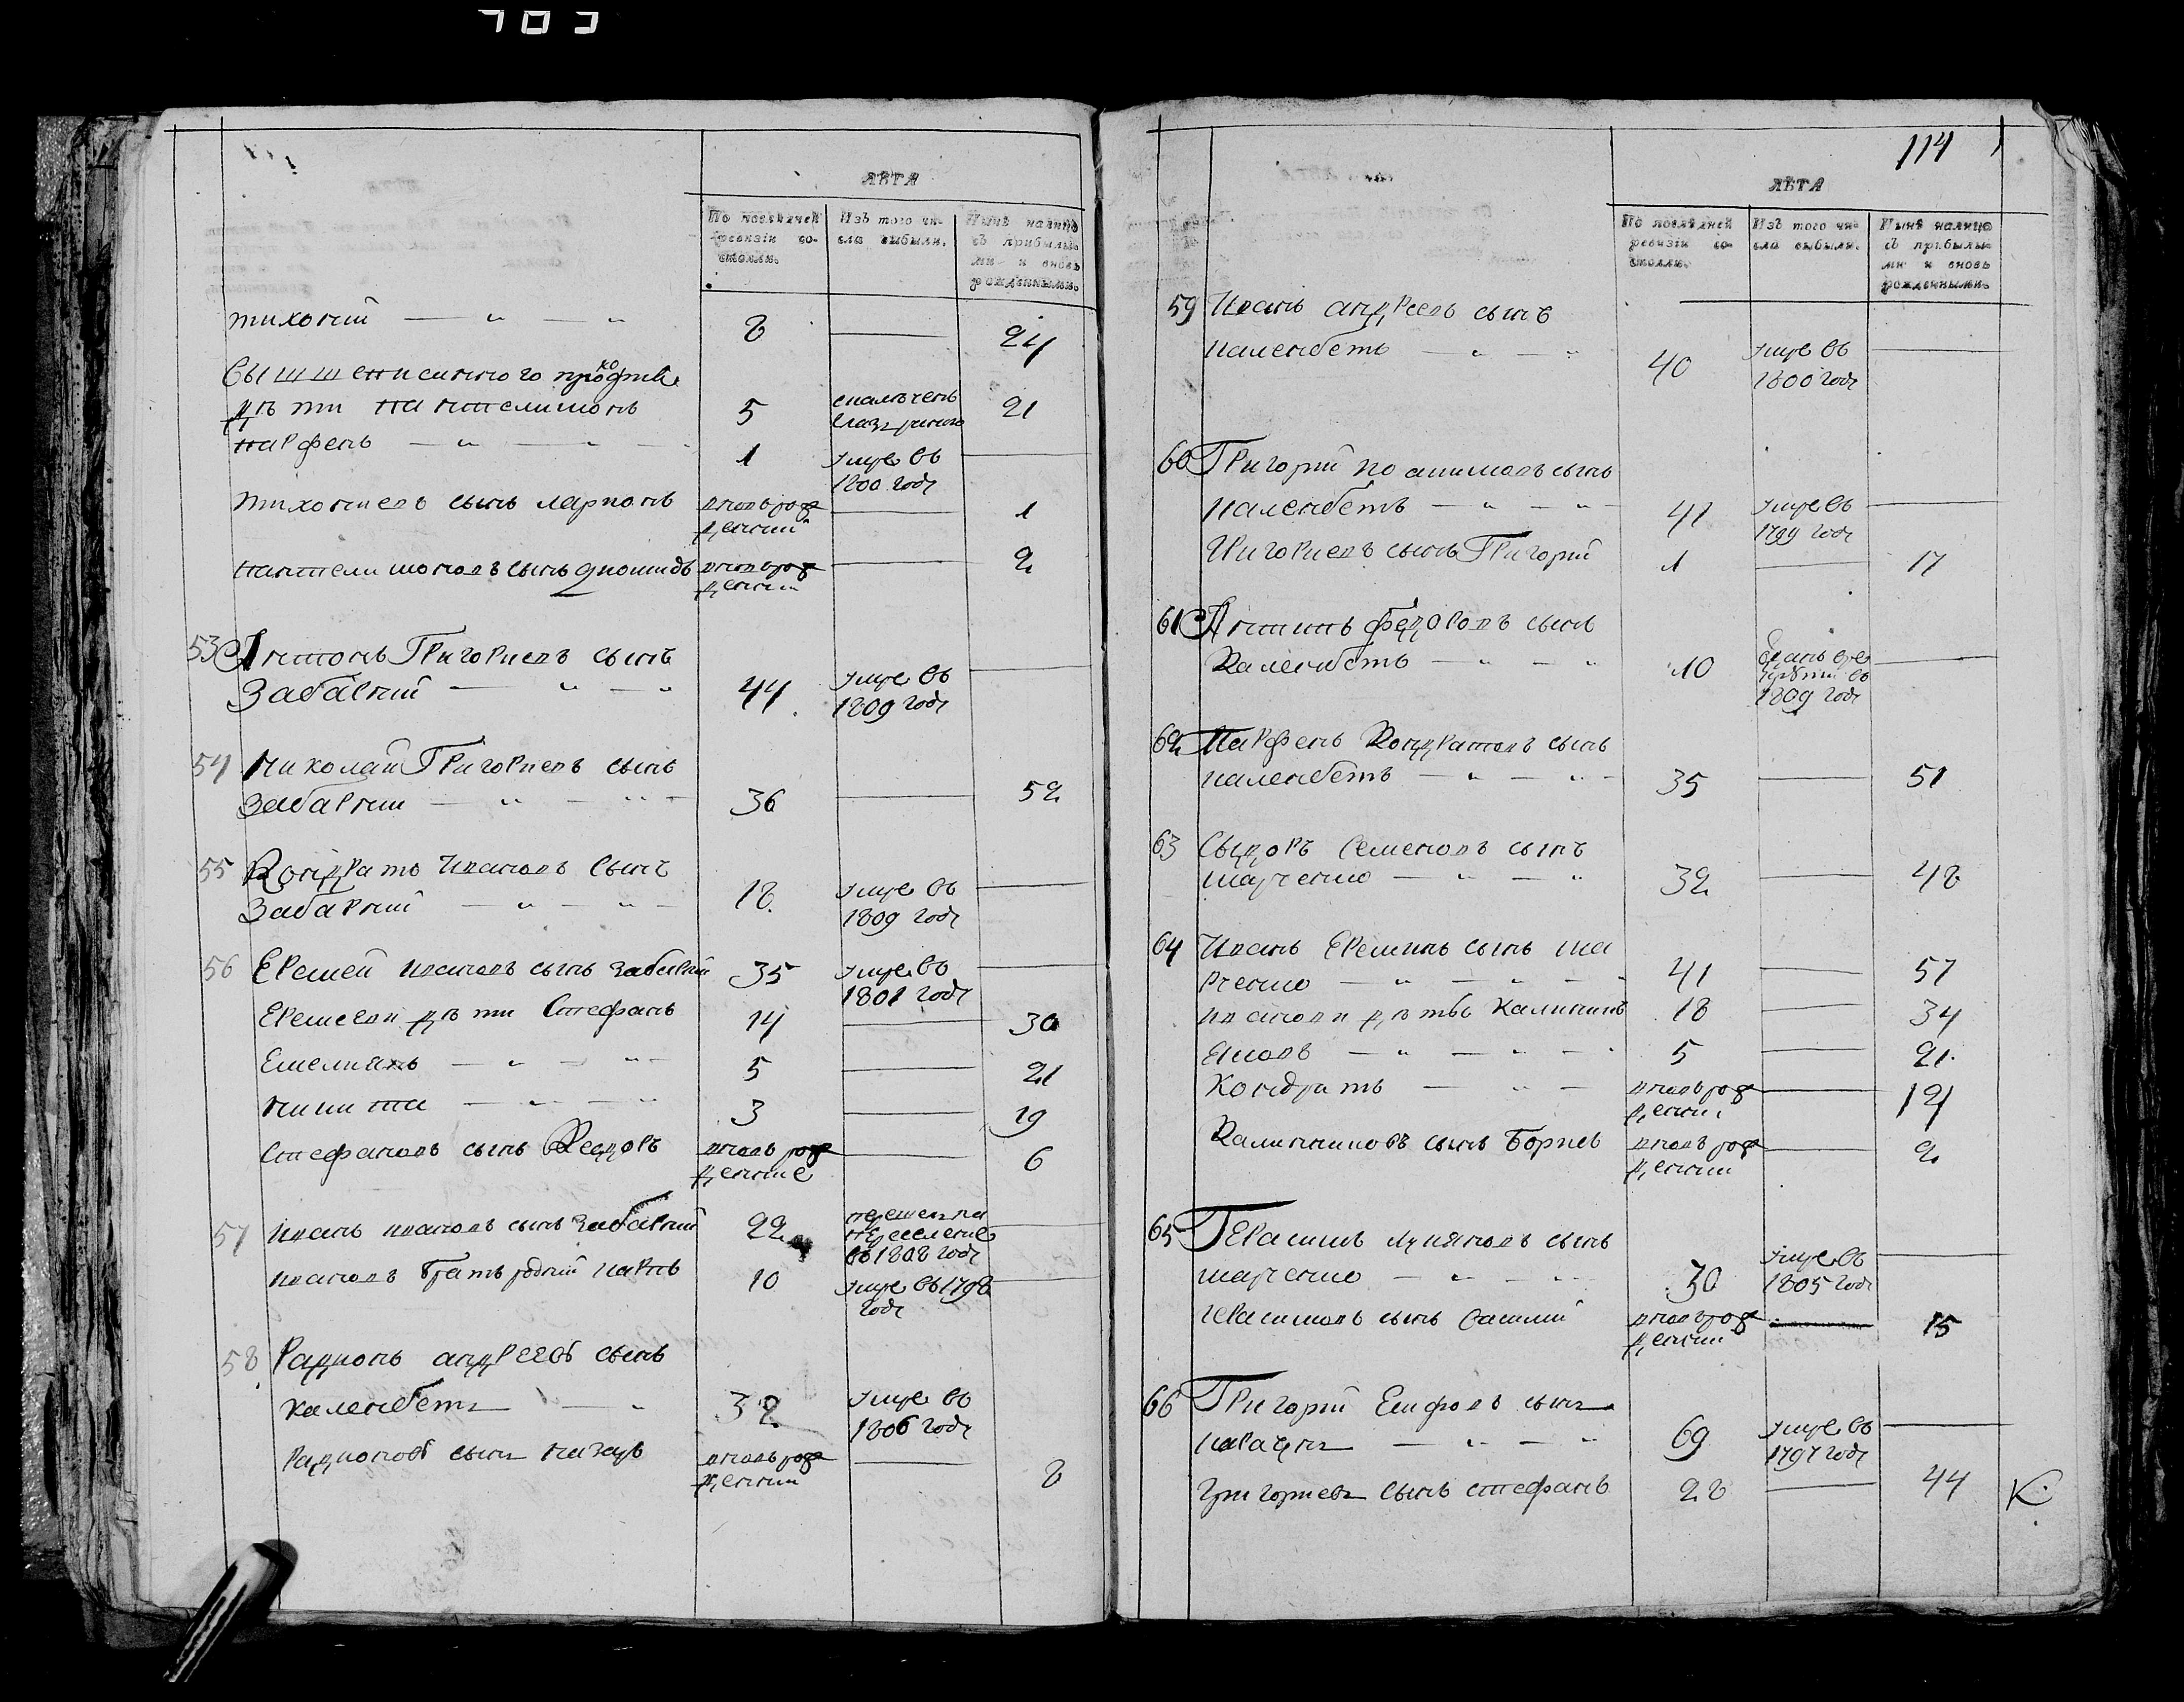 ЛѢТА
По послѣдней ревизіи состояли.
Изъ того числа выбыли.
Нынѣ налицо съ прибылыми и вновь рожденными.
тихоній — " — " 8 — 24
Вышшеписанного прокофія
дѣти пантелимонъ 5 21
парфенъ — " — " — 1 умре въ 1800 годѣ —
тихониевъ сынъ ларионъ вновь рожденній — 1
пантелимоновъ сынъ вновь рожденній — 2
53 Антонъ Григориевъ сынъ
Забавній — " — " 44 умре въ 1809 годѣ —
54 Николай Григориевъ сынъ
Забавній — " — " 36 — 52
55 Кондратъ Ивановъ Сынъ
Забавній — " — " — 18 умре въ 1809 годѣ —
56 Еремей ивановъ сынъ забавній 35 умре въ 1801 годѣ —
Еремеви дѣти Стефанъ 14 — 30
Емелиянъ — " — " — 5 — 21
никита — " — " 3 — 19
Стефановъ сынъ Федоръ вновь рожденние — 6
57 иванъ ивановъ сынъ забавній 22 перешелъ на переселение въ 1808 годѣ —
ивановъ братъ родній карпъ 10 умре въ 1798 годѣ —
58 Радионъ андреевъ сынъ
каленбетъ — " 32 умре въ 1806 годѣ
Радионовъ сынъ назаръ вновь рожденній — 8
114
ЛѢТА
По послѣдней ревизіи состояли.
Изъ того числа выбыли.
Нынѣ налицо съ прибылыми и вновь рожденными.
59 Иванъ андреевъ сынъ
каленбетъ — " — " 40 умре въ 1800 годѣ —
60 Григорий сынъ
каленбетъ — " — " 41 умре въ 1799 годѣ —
Григориевъ сынъ Григорий 1 — 17
61 Антипъ федоровъ сынъ
Каленбетъ — " — " 10 въ 1809 годѣ —
62 Парфенъ Кондратовъ сынъ
каленбетъ — " — " — 35 — 51
63 Сыдоръ Семеновъ сынъ
марченко — " — " 32 — 48
64 Иванъ Ереминъ сынъ ма
рченко — " — " — " 41 — 57
ивановы дѣтьѣ Калиникъ 18 — 34
Яковъ — " — " — 5 — 21
Кондратъ — " — вновь рожденни — 14
Калинниковъ сынъ Борисъ вновь рожденни — 2
65 Герасимъ лукяновъ сынъ
марченко — " — " 30 умре въ 1805 годѣ —
Герасимовъ сынъ василий вновь рожденній — 15
66 Григорий сынъ
— " — " 69 умре въ 1797 годѣ —
Григориевъ сынъ стефанъ 28 — 44 К